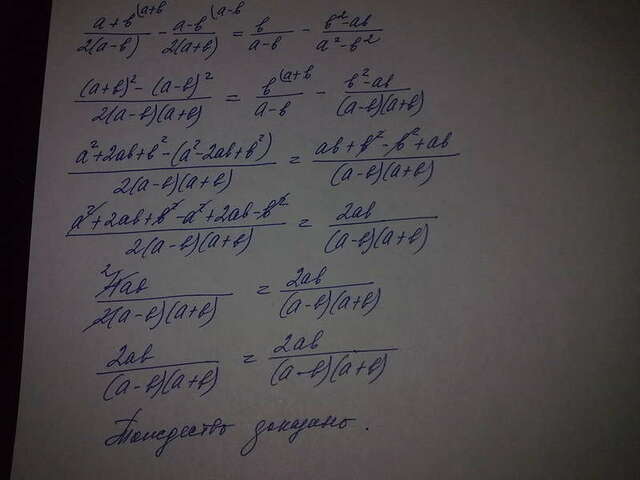 (a+b)/(2(a-b)) ⁽ᵃ⁺ᵇ - (a-b)/(2(a+b)) ⁽ᵃ⁻ᵇ = b/(a-b) - (b²-ab)/(a²-b²)
((a+b)²-(a-b)²)/(2(a-b)(a+b)) = b/(a-b) ⁽ᵃ⁺ᵇ - (b²-ab)/((a-b)(a+b))
(a²+2ab+b²-(a²-2ab+b²))/(2(a-b)(a+b)) = (ab+b²-b²+ab)/((a-b)(a+b))
(a²+2ab+b²-a²+2ab-b²)/(2(a-b)(a+b)) = 2ab/((a-b)(a+b))
²4ab/(2(a-b)(a+b)) = 2ab/((a-b)(a+b))
2ab/((a-b)(a+b)) = 2ab/((a-b)(a+b))
Тождество доказано.